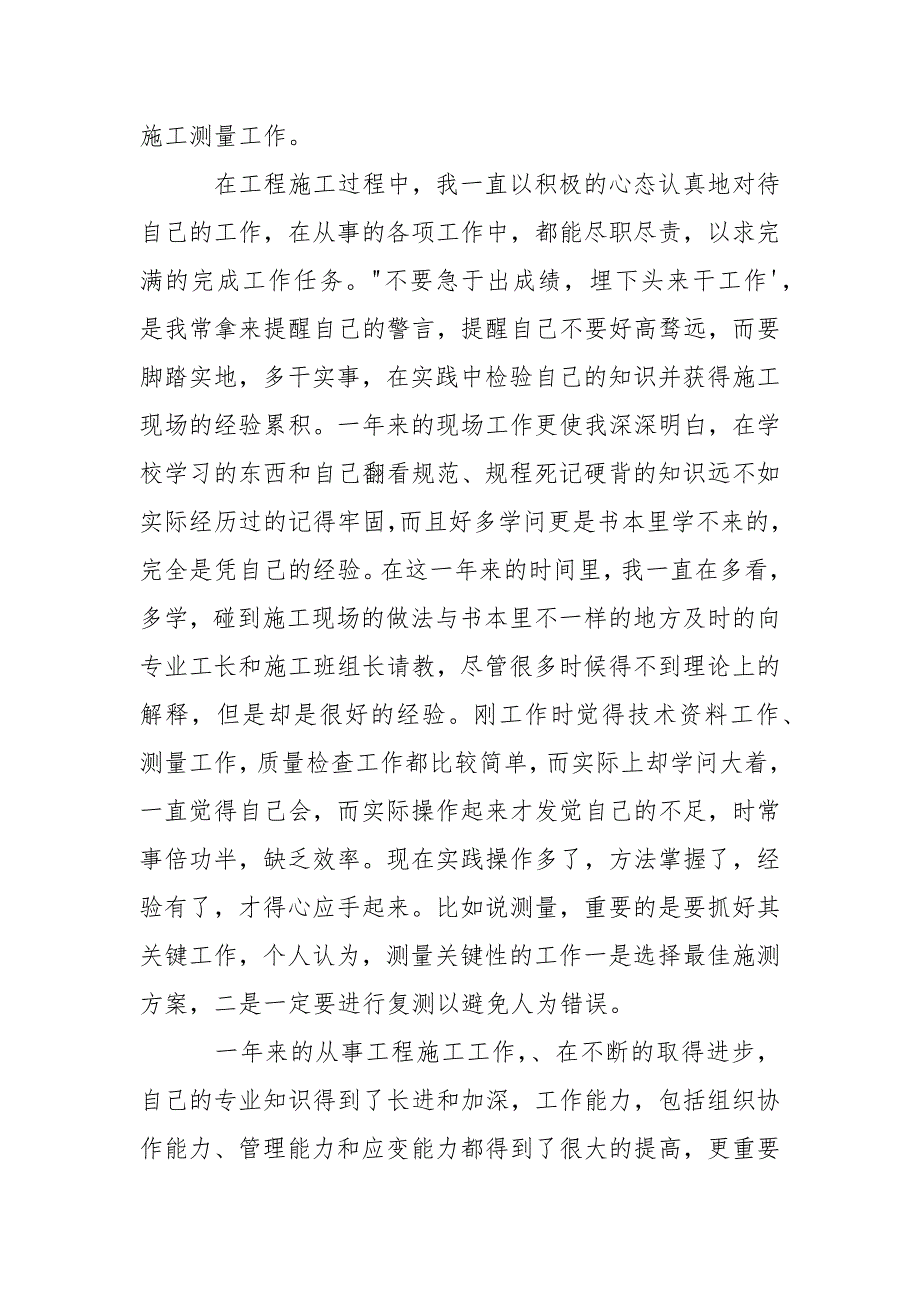 施工测量工作。
在工程施工过程中，我一直以积极的心态认真地对待
自己的工作，在从事的各项工作中，都能尽职尽责，以求完
满的完成工作任务。"不要急于出成绩，埋下头来干工作'，
是我常拿来提醒自己的警言，提醒自己不要好高骛远，而要
脚踏实地，多干实事，在实践中检验自己的知识并获得施工
现场的经验累积。一年来的现场工作更使我深深明白，在学
校学习的东西和自己翻看规范、规程死记硬背的知识远不如
实际经历过的记得牢固，而且好多学问更是书本里学不来的，
完全是凭自己的经验。在这一年来的时间里，我一直在多看，
多学，碰到施工现场的做法与书本里不一样的地方及时的向
专业工长和施工班组长请教，尽管很多时候得不到理论上的
解释，但是却是很好的经验。刚工作时觉得技术资料工作、
测量工作，质量检查工作都比较简单，而实际上却学问大着，
一直觉得自己会，而实际操作起来才发觉自己的不足，时常
事倍功半，缺乏效率。现在实践操作多了，方法掌握了，经
验有了，才得心应手起来。比如说测量，重要的是要抓好其
关键工作，个人认为，测量关键性的工作一是选择最佳施测
方案，二是一定要进行复测以避免人为错误。
一年来的从事工程施工工作，、在不断的取得进步，
自己的专业知识得到了长进和加深，工作能力，包括组织协
作能力、管理能力和应变能力都得到了很大的提高，更重要